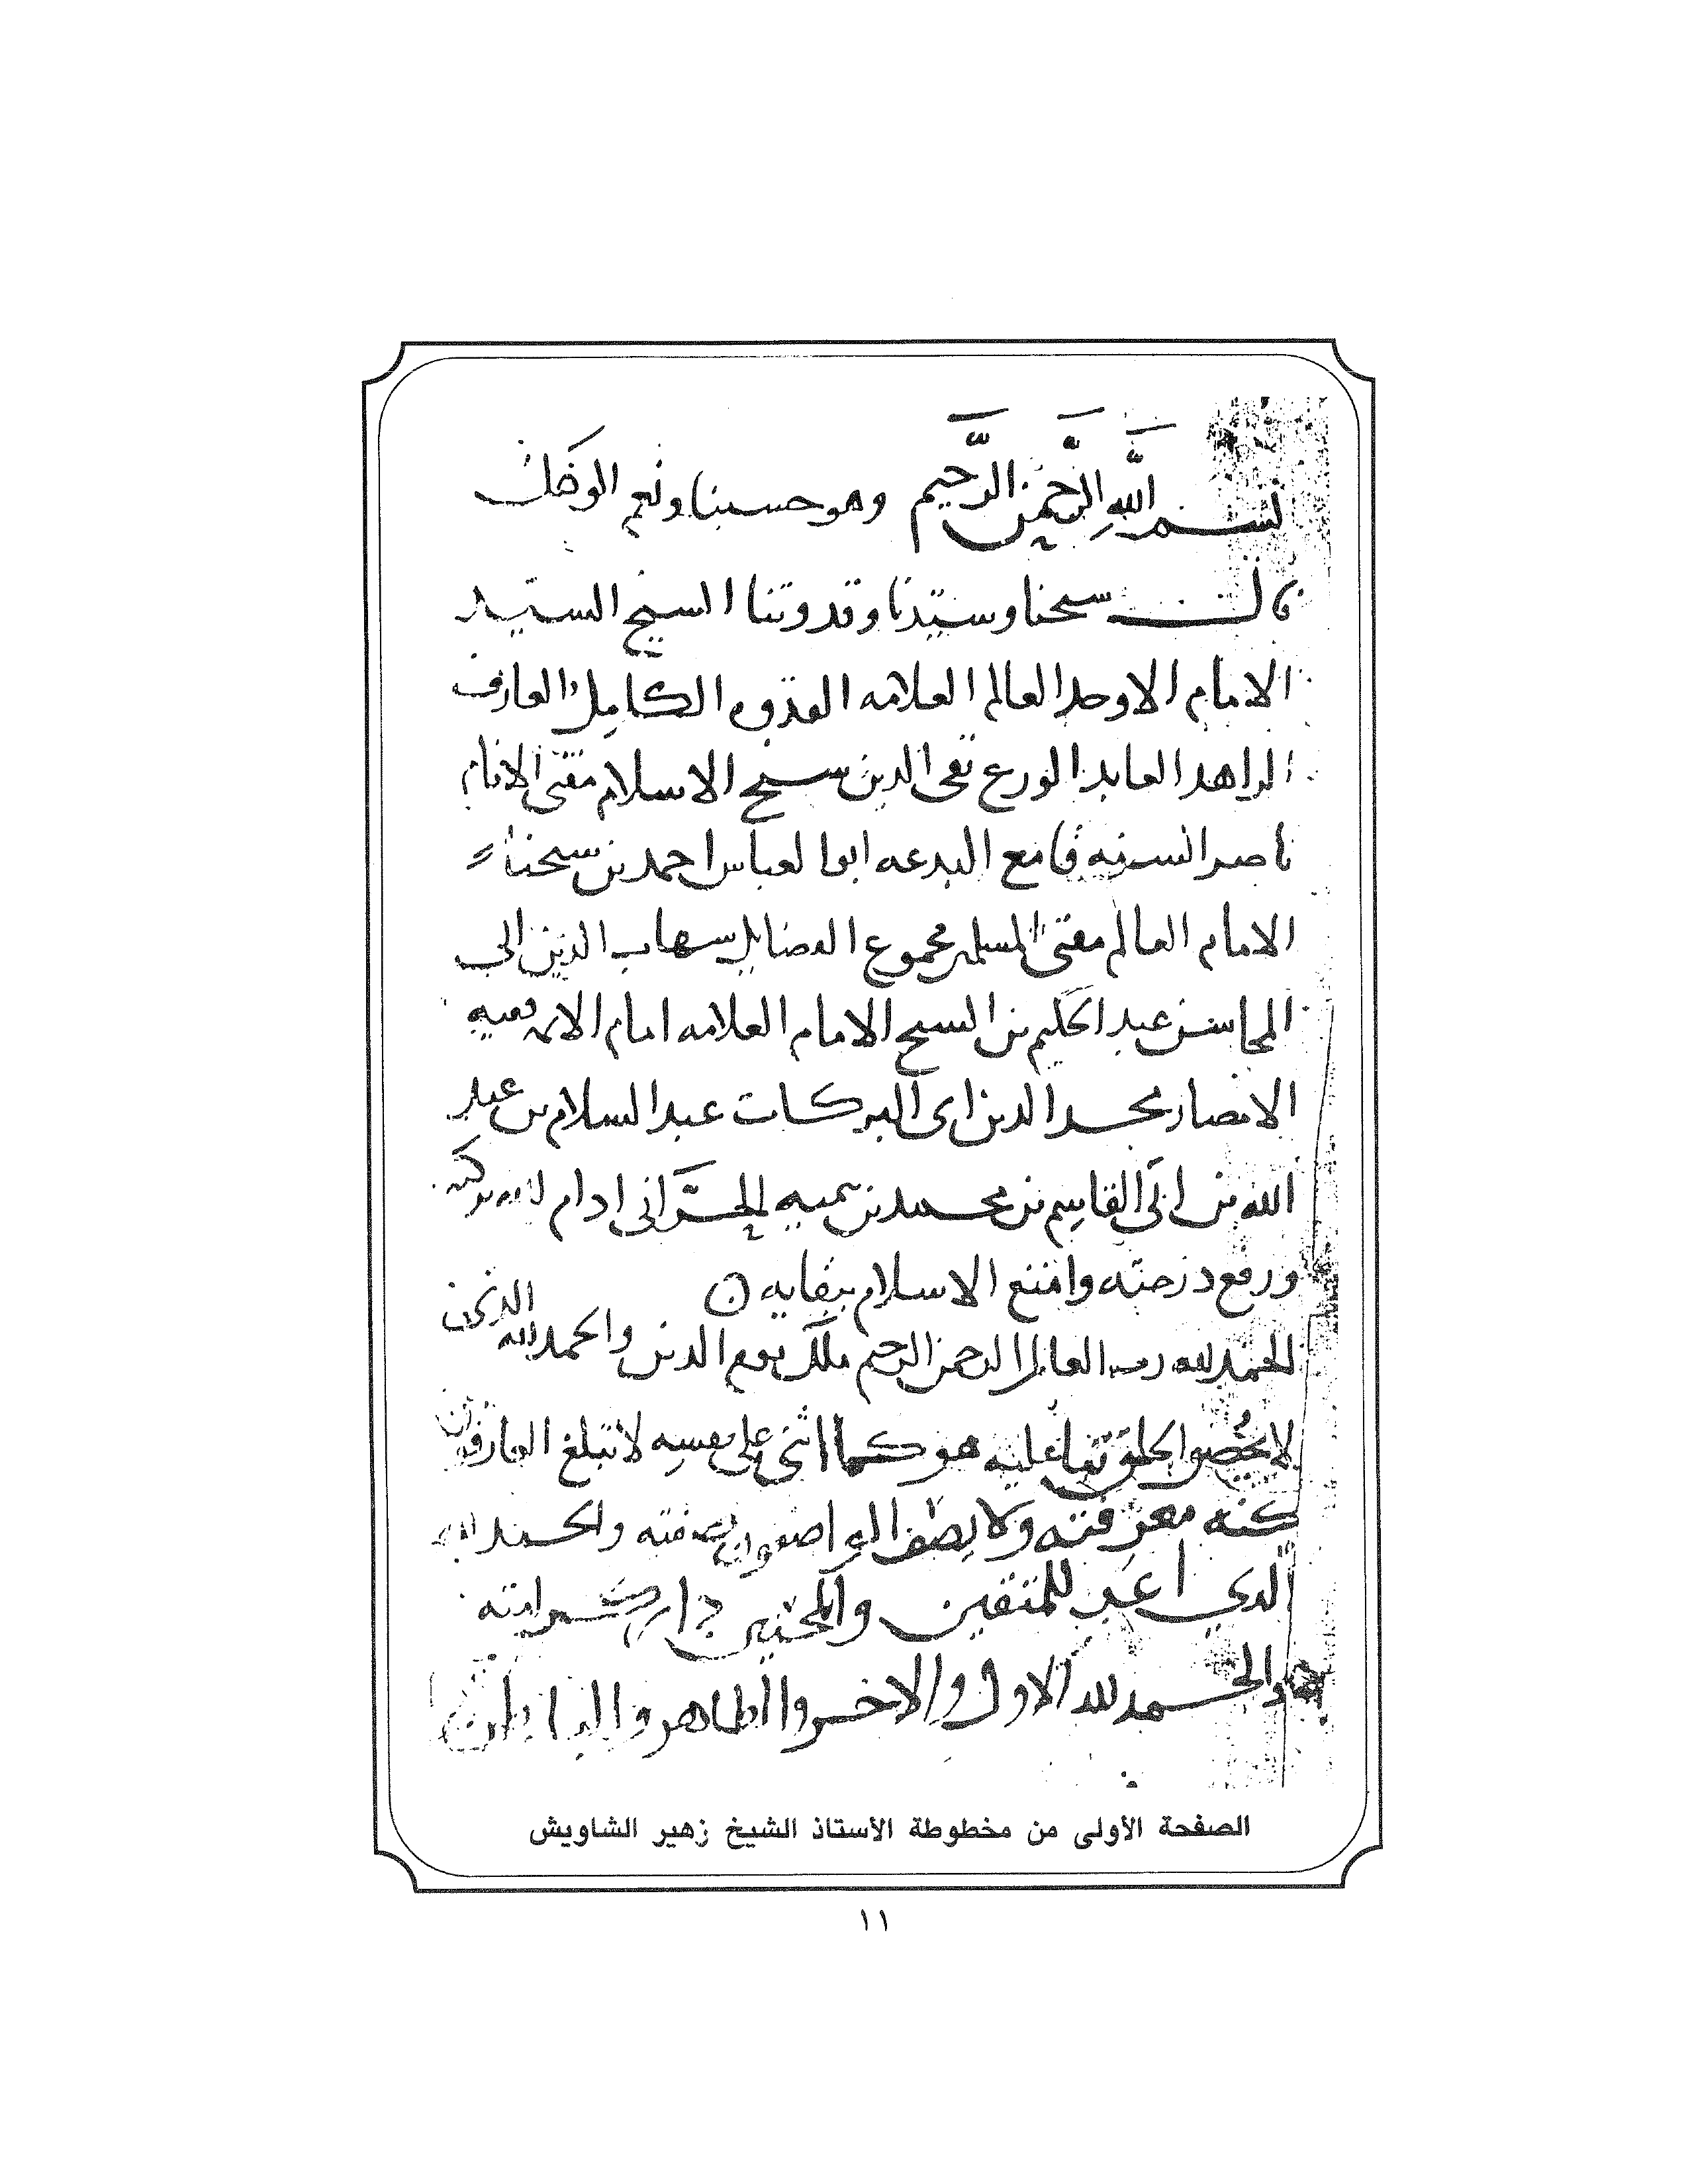 بسم الله الرحمن الرحيم وهو حسبنا ونعم الوكيل
قال شيخنا وسيدنا وقدوتنا الشيخ السيد
الامام الاوحد العالم العلامه القدوه الكامل العارف
الزاهد العابد الورع تقي الدين شيخ الاسلام مفتي الانام
ناصر السنه قامع البدعه ابو العباس احمد بن شيخنا
الامام العالم مفتي المسلمين مجموع الفضايل شهاب الدين ابي
المحاسن عبد الحليم بن الشيخ الامام العلامه امام الائمه فقيه
الامصار مجد الدين ابي البركات عبد السلام بن عبد
الله بن ابي القاسم بن محمد بن تيميه الحراني ادام الله بركته
ورفع درجته وامتع الاسلام ببقايه
الحمد لله رب العالمين الرحمن الرحيم ملك يوم الدين والحمد لله الذي
لا يحصوا الخلق ثناء عليه هو كما اثنى على نفسه لا تبلغ العارفون
كنه معرفته ولا يصف الواصفون صفته والحمد لله
الذي للمتقين دار كرامته
والحمد لله الاول والاخر والظاهر والباطن
الصفحة الأولى من مخطوطة الأستاذ الشيخ زهير الشاويش
١١